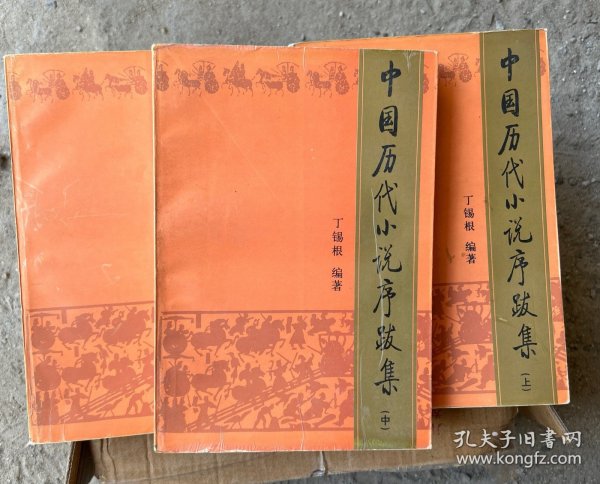 中国历代小说序跋集
(中)
丁锡根 编著
中国历代小说序跋集
(上)
丁锡根 编著
孔夫子旧书网
www.kongfz.com